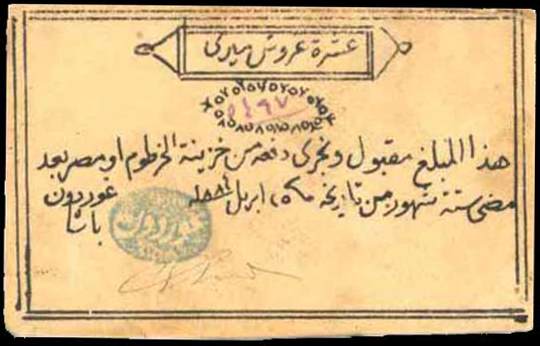 عشرة غروش ميري
هذا المبلغ مقبول وتجري دفعه من خزينة الخرطوم او مصر بعد
مضى ستة شهور من تاريخه ٢٥ ابريل ١٨٨٤
غوردون
باشا